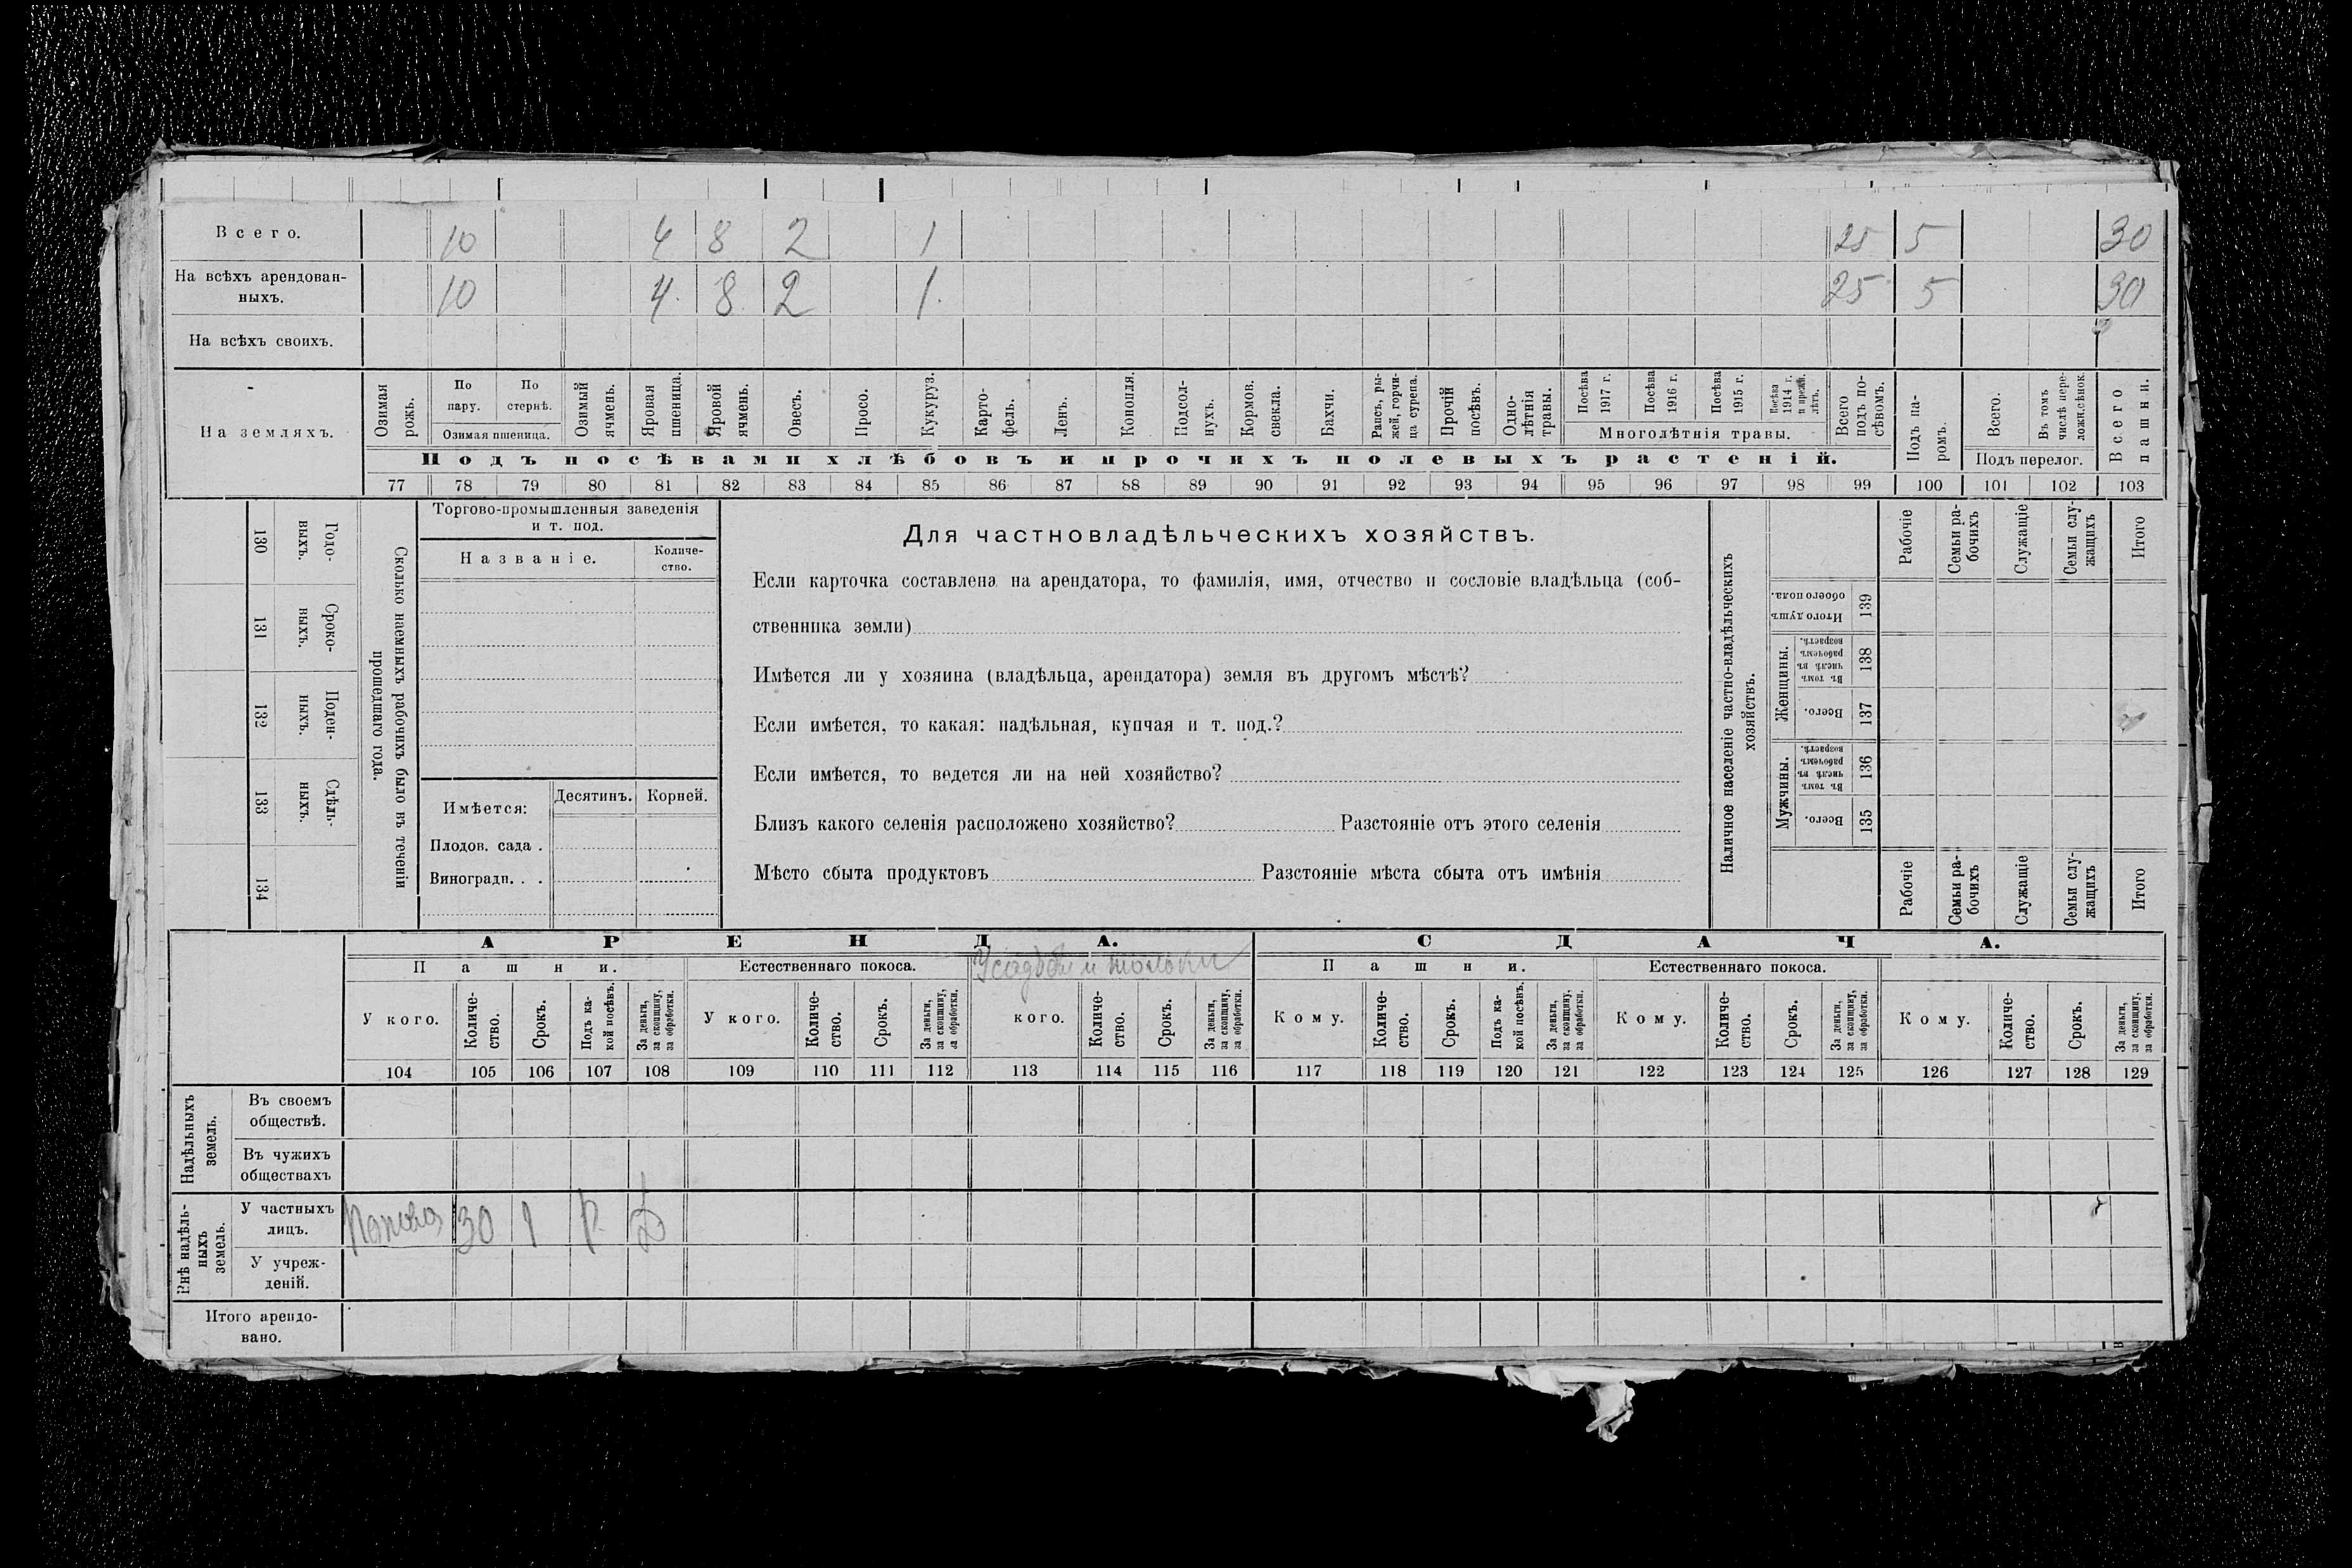 Всего. 10 4 8 2 1 25 5 30
На всѣхъ арендован-
ныхъ. 10 4. 8. 2 1. 25 5 30
На всѣхъ своихъ.
На земляхъ.
Озимая рожь.
По пару.
По стернѣ.
Озимая пшеница.
Озимый ячмень.
Яровая пшеница.
Яровой ячмень.
Овесъ.
Просо.
Кукуруз.
Карто-
фель.
Ленъ.
Конопля.
Подсол-
нухъ.
Кормов. свекла.
Бахчи.
Рапсъ, ры-
жей, горчи-
ца сурепа.
Прочій посѣвъ.
Одно-
лѣтнія травы.
Посѣва 1917 г.
Посѣва 1916 г.
Посѣва 1915 г.
Посѣва 1914 г. и прежн. лѣтъ.
Многолѣтнія травы.
Всего подъ по-
сѣвомъ.
Подъ па-
ромъ.
Всего.
Въ томъ числѣ пере-
ложн.сѣнок.
Подъ перелог.
Всего пашни.
Подъ посѣвами хлѣбовъ и прочихъ полевыхъ растеній.
77 78 79 80 81 82 83 84 85 86 87 88 89 90 91 92 93 94 95 96 97 98 99 100 101 102 103
130 Годо-
выхъ.
131 Сроко-
выхъ.
132 Поден-
ныхъ.
133 Сдѣль-
ныхъ.
134
Сколько наемныхъ рабочихъ было въ теченіи
прошедшаго года.
Торгово-промышленныя заведенія
и т. под.
Названіе. Количе-
ство.
Имѣется: Десятинъ. Корней.
Плодов. сада .
Виноградн. . .
Для частновладѣльческихъ хозяйствъ.
Если карточка составлена на арендатора, то фамилія, имя, отчество и сословіе владѣльца (соб-
ственника земли)
Имѣется ли у хозяина (владѣльца, арендатора) земля въ другомъ мѣстѣ?
Если имѣется, то какая: надѣльная, купчая и т. под.?
Если имѣется, то ведется ли на ней хозяйство?
Близъ какого селенія расположено хозяйство? Разстояніе отъ этого селенія
Мѣсто сбыта продуктовъ Разстояніе мѣста сбыта отъ имѣнія
Наличное населеніе частно-владѣльческихъ
хозяйствъ.
Рабочіе
Семьи ра-
бочихъ
Служащіе
Семьи слу-
жащихъ
Итого
Итого душъ обоего пола. 139
Женщины.
Въ томъ числѣ въ рабочемъ возрастѣ. 138
Всего. 137
Мужчины.
Въ томъ числѣ въ рабочемъ возрастѣ. 136
Всего. 135
Рабочіе
Семьи ра-
бочихъ
Служащіе
Семьи слу-
жащихъ
Итого
АРЕНДА. СДАЧА.
Пашни. Естественнаго покоса. Усадьбы и толоки Пашни. Естественнаго покоса.
У кого. Количе-
ство. Срокъ. Подъ ка-
кой посѣвъ. За деньги, за скопщину, за обработки.
У кого. Количе-
ство. Срокъ. За деньги, за скопщину, за обработки.
кого. Количе-
ство. Срокъ. За деньги, за скопщину, за обработки.
Кому. Количе-
ство. Срокъ. Подъ ка-
кой посѣвъ. За деньги, за скопщину, за обработки.
Кому. Количе-
ство. Срокъ. За деньги, за скопщину, за обработки.
Кому. Количе-
ство. Срокъ. За деньги, за скопщину, за обработки.
104 105 106 107 108 109 110 111 112 113 114 115 116 117 118 119 120 121 122 123 124 125 126 127 128 129
Надѣльныхъ
земель.
Въ своемъ
обществѣ.
Въ чужихъ
обществахъ
Внѣ надѣль-
ныхъ
земель.
У частныхъ
лицъ. 30 1
У учреж-
деній.
Итого арендо-
вано.